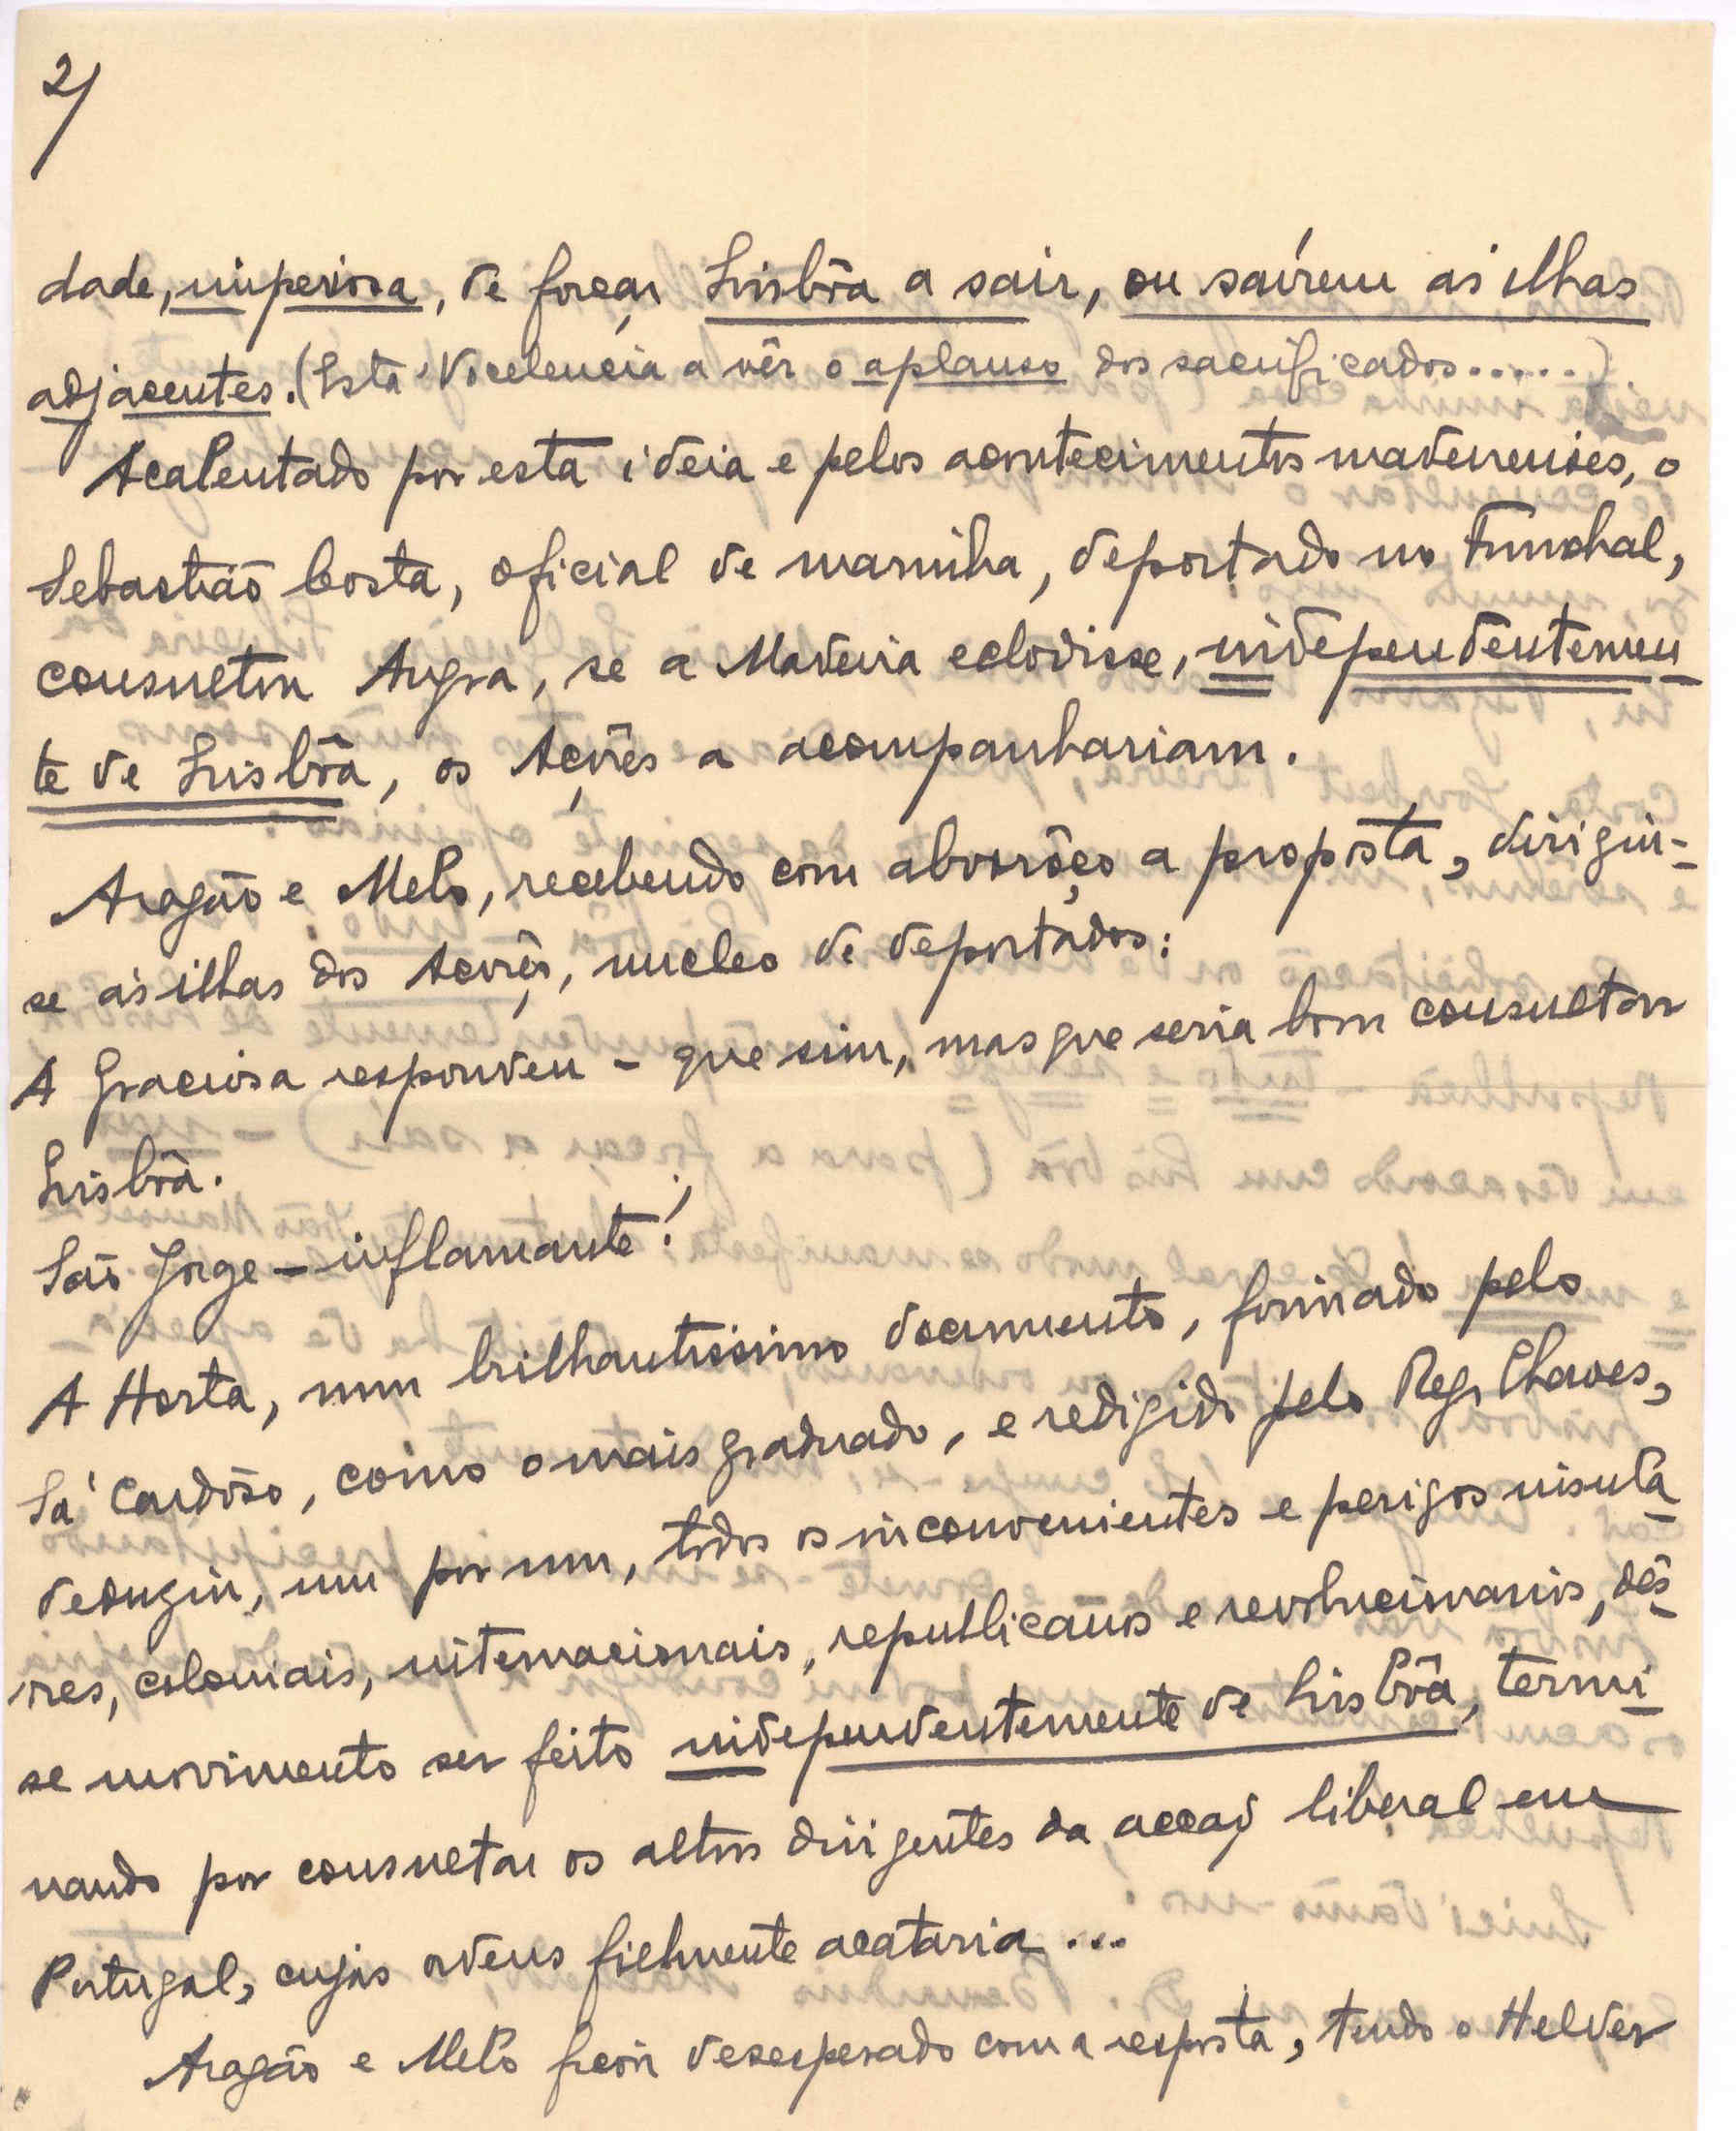 2/
dade, imperiosa, de forçar Lisbôa a sair, ou saírem as ilhas
adjacentes. (Está Vocelencia a vêr o aplauso dos sacrificados.....)
Acalentado por esta ideia e pelos acontecimentos madeirenses, o
Sebastião Costa, oficial de marinha, deportado no Funchal,
consultou Angra, se a Madeira eclodisse, independentemen-
te de Lisbôa, os Açôres a acompanhariam.
Aragão e Melo, recebendo com alvorôço a proposta, dirigiu-
se ás ilhas dos Açôres, nucleo de deportados:
A Graciosa respondeu - que sim, mas que seria bom consultar
Lisbôa.
São Jorge - inflamante!
A Horta, num brilhantissimo documento, firmado pelo
Sá Cardôso, como o mais graduado, e redigido pelo Rego Chaves,
deduziu, um por um, todos os inconvenientes e perigos insula-
res, coloniais, internacionais, republicanos e revolucionarios, dês-
se movimento ser feito independentemente de Lisbôa, termi-
nando por consultar os altos dirigentes da acção liberal em
Portugal, cujas ordens fielmente acataria...
Aragão e Melo ficou desesperado com a resposta, tendo o Helder